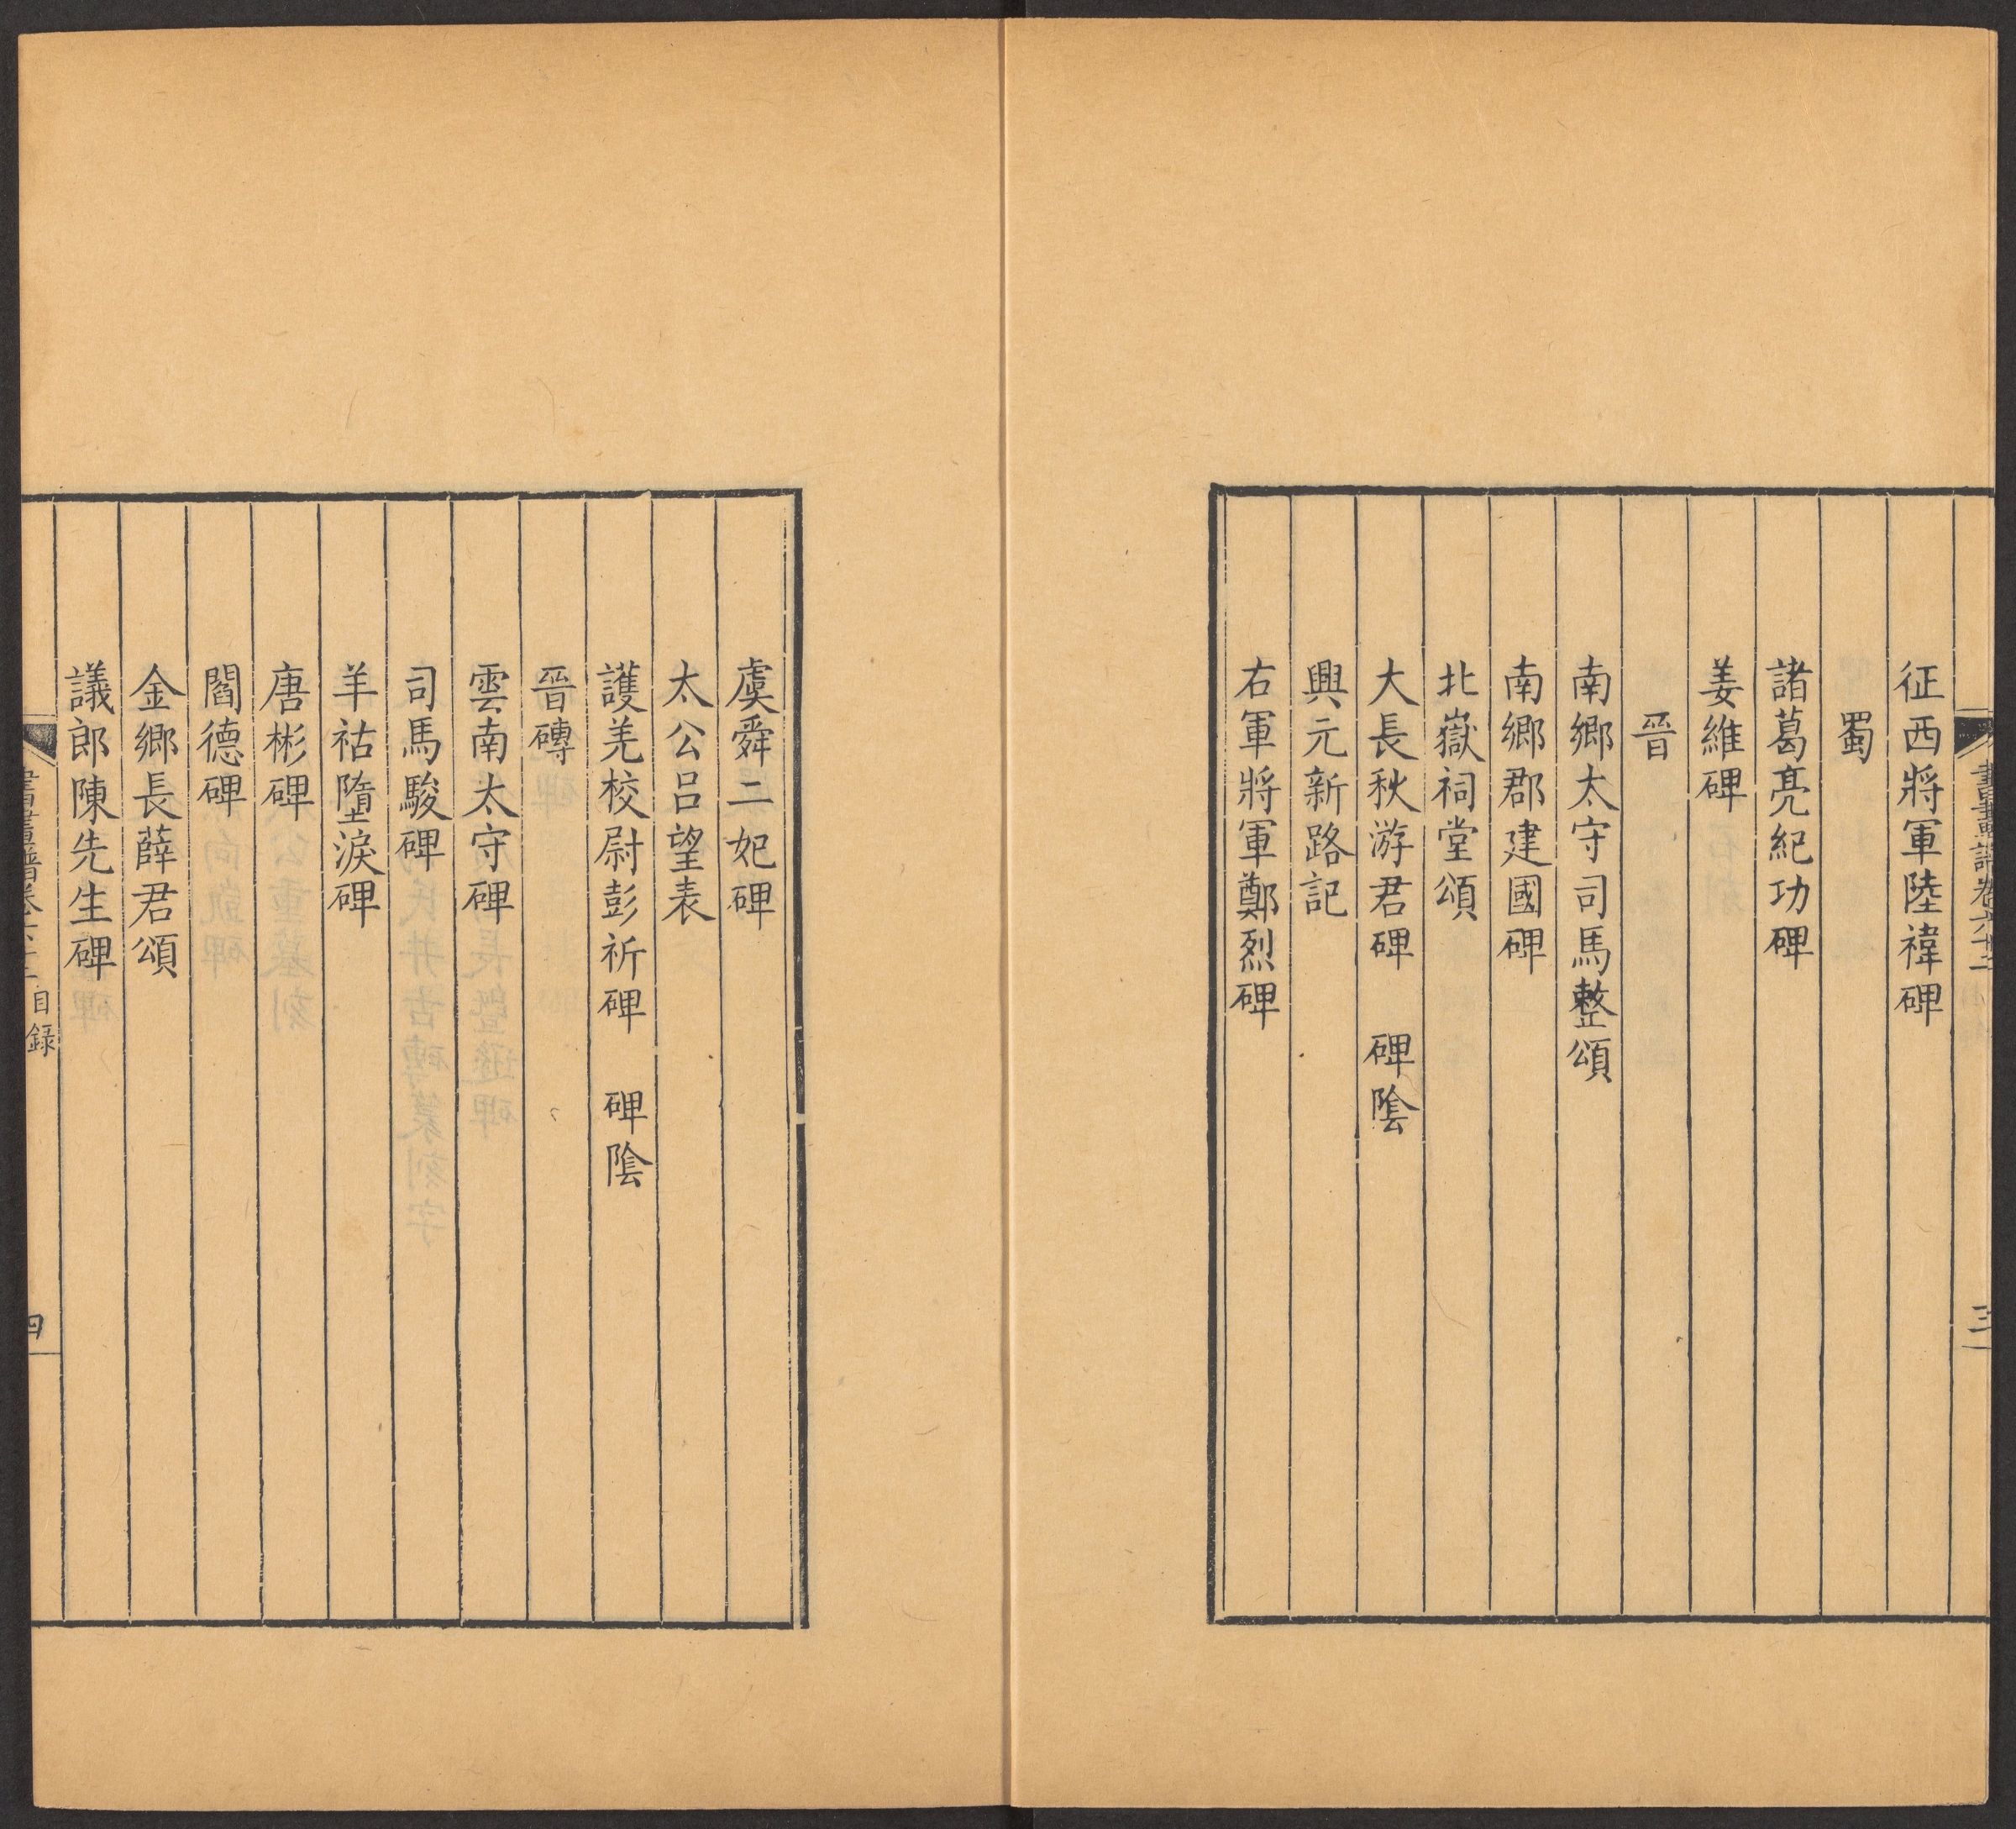 書畫譜卷六十二
三
征西將軍陸禕碑
蜀
諸葛亮紀功碑
姜維碑
晉
南鄉太守司馬整頌
南鄉郡建國碑
北嶽祠堂頌
大長秋游君碑　碑陰
興元新路記
右軍將軍鄭烈碑
虞舜二妃碑
太公呂望表
護羌校尉彭祈碑　碑陰
晉磚
雲南太守碑
司馬駿碑
羊祜墮淚碑
唐彬碑
閻德碑
金鄉長薛君頌
議郎陳先生碑
書畫譜卷六十二　目錄
四